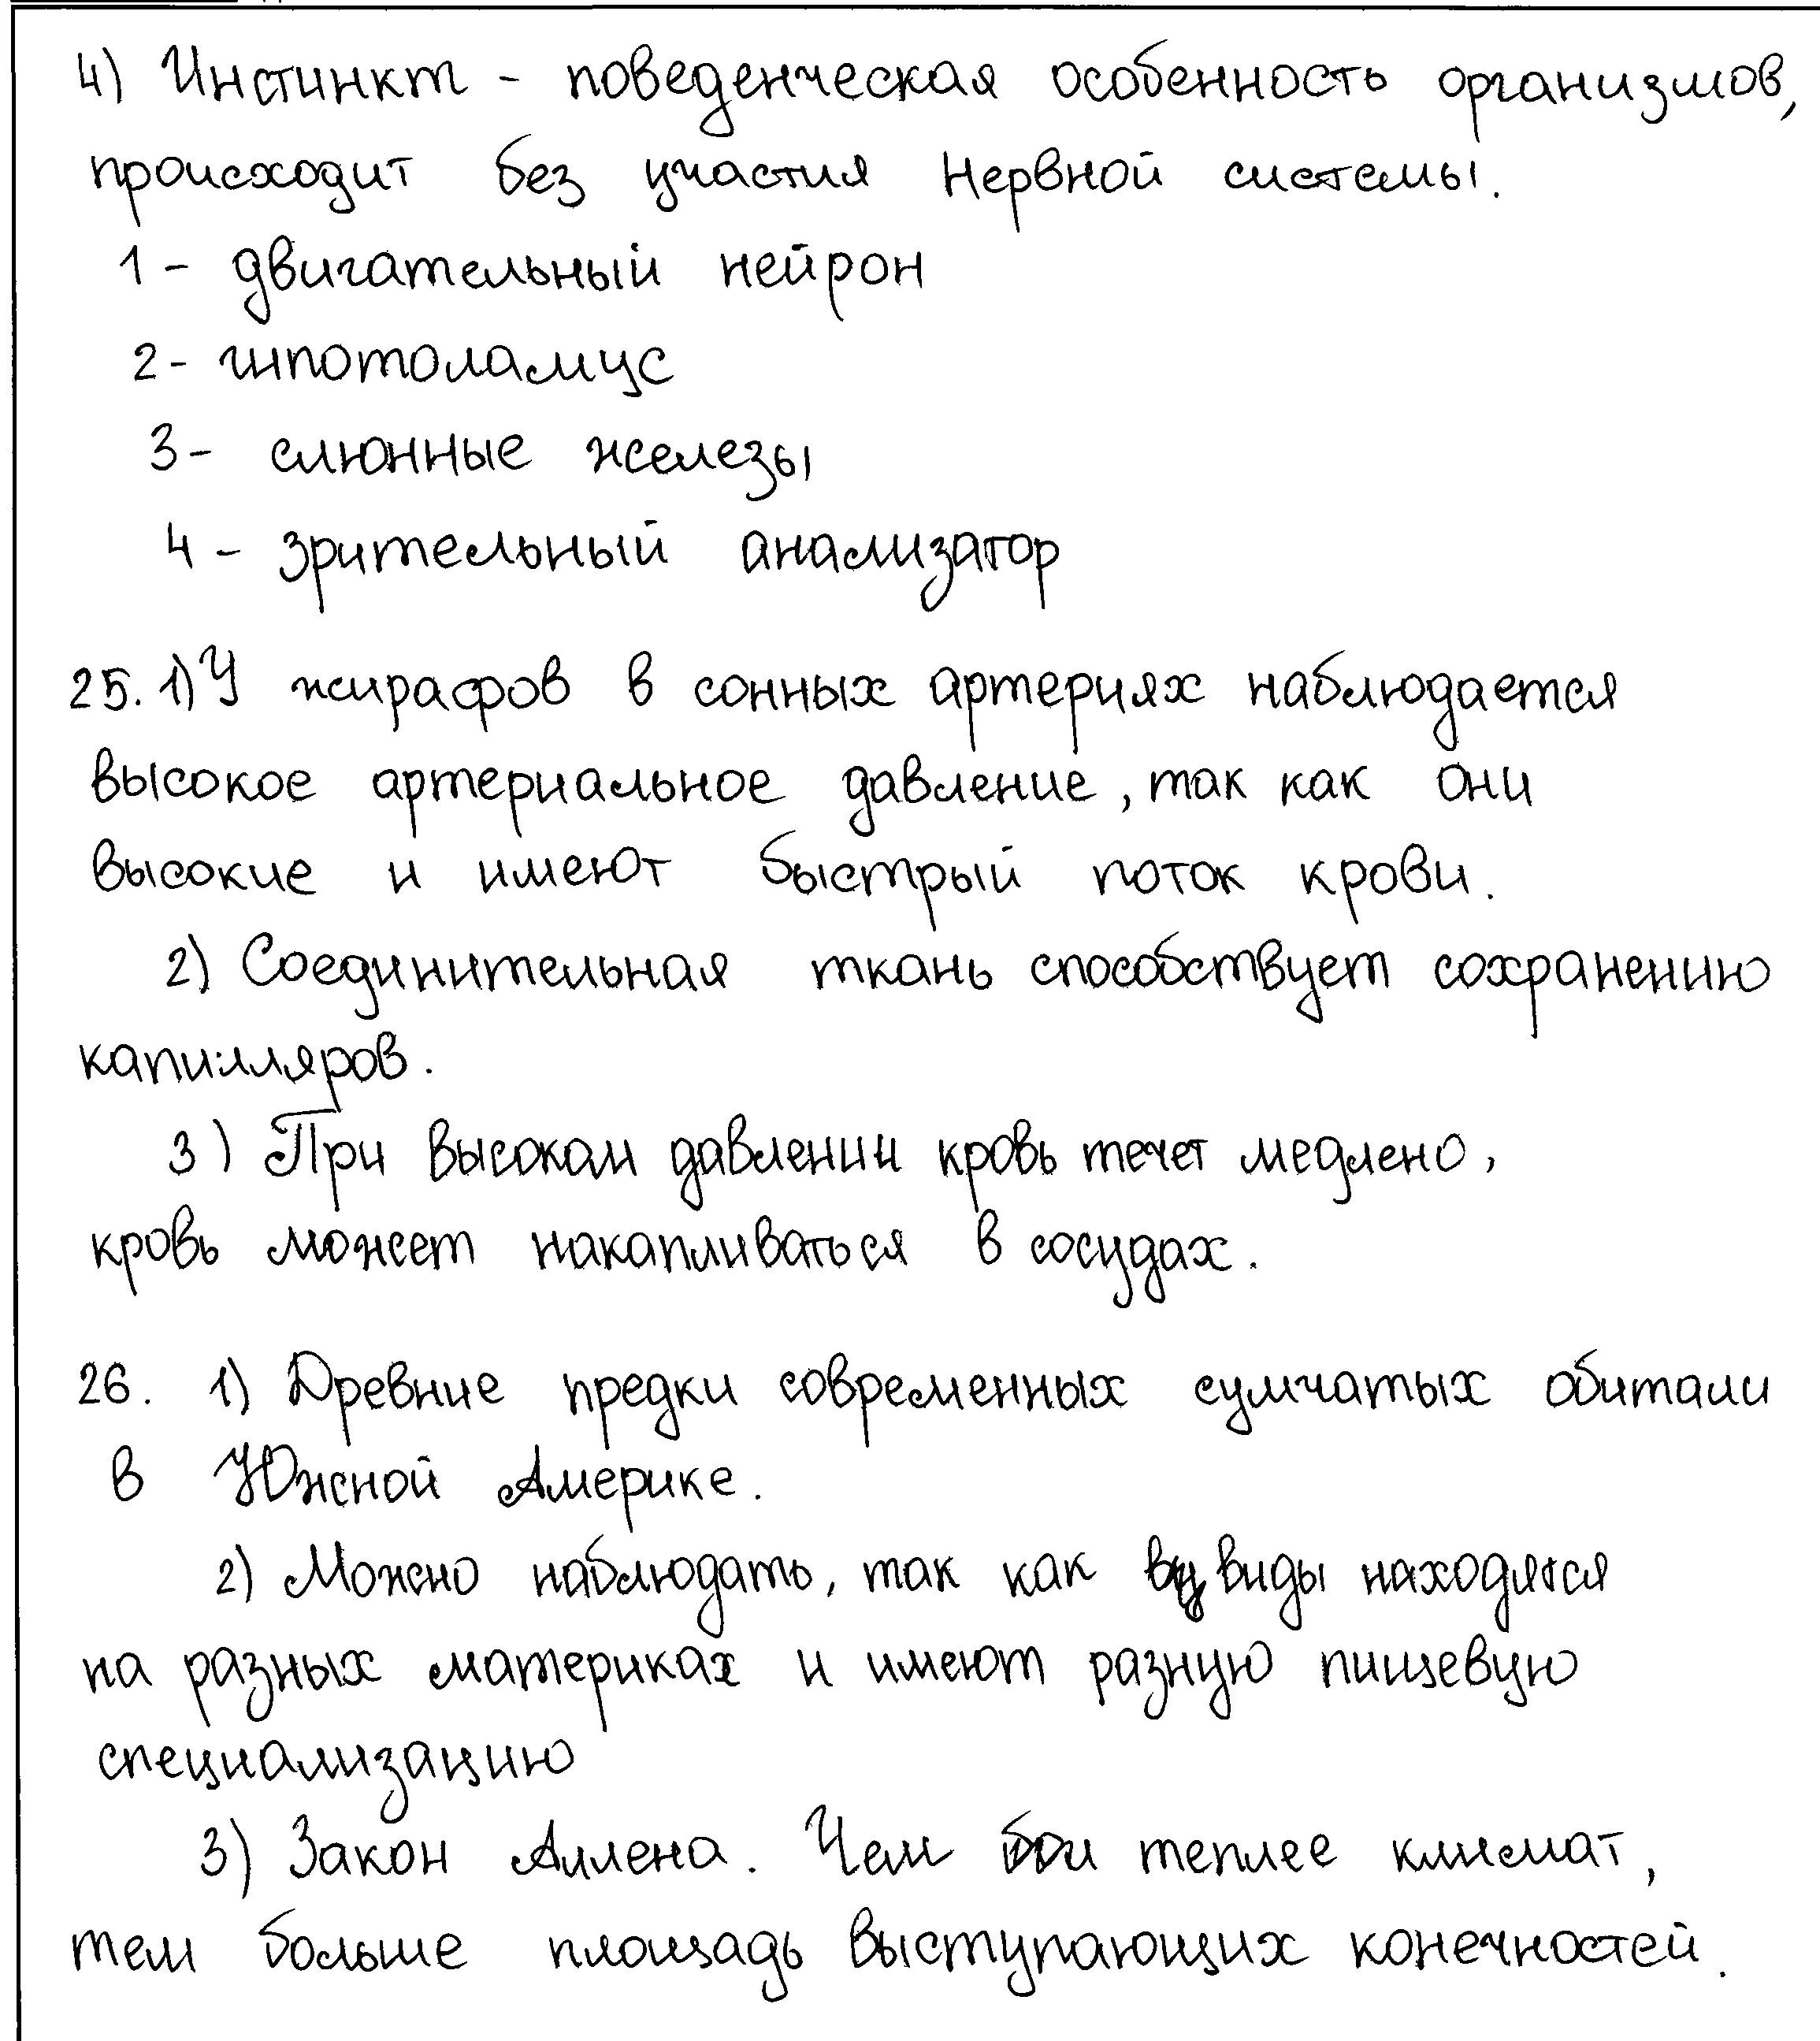 4) Инстинкт - поведенческая особенность организмов,
происходит без участия нервной системы.
1 - двигательный нейрон
2 - гипотоламус
3 - слюнные железы
4 - зрительный анализатор
25. 1) У жирафов в сонных артериях наблюдается
высокое артериальное давление, так как они
высокие и имеют быстрый поток крови.
2) Соединительная ткань способствует сохранению
капилляров.
3) При высоком давлении кровь течет медлено,
кровь может накапливаться в сосудах.
26. 1) Древние предки современных сумчатых обитали
в Южной Америке.
2) Можно наблюдать, так как виды находятся
на разных материках и имеют разную пищевую
специализацию
3) Закон Аллена. Чем теплее климат,
тем больше площадь выступающих конечностей.